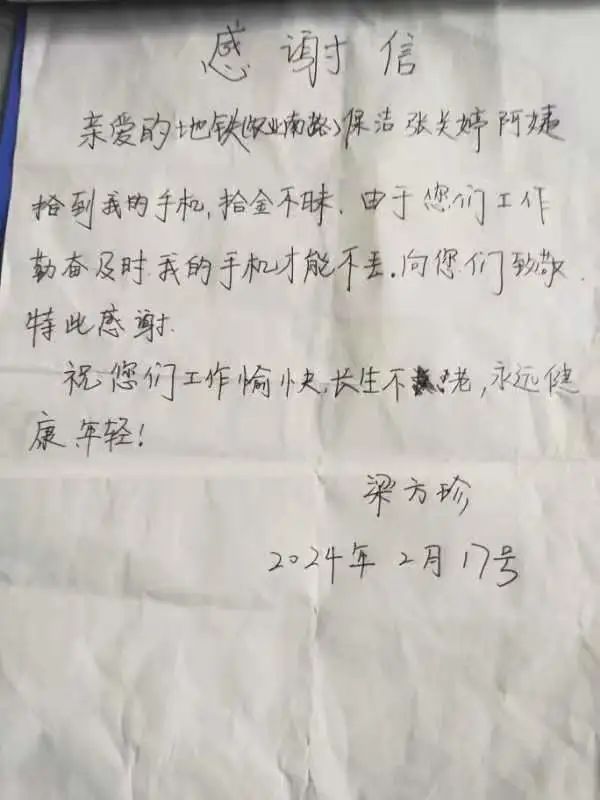 感谢信
亲爱的地铁(农业南路)保洁张关婷阿姨
拾到我的手机,拾金不昧.由于您们工作
勤奋及时.我的手机才能不丢.向您们致敬.
特此感谢.
祝您们工作愉快,长生不老,永远健
康年轻!
梁方珍
2024年2月17号